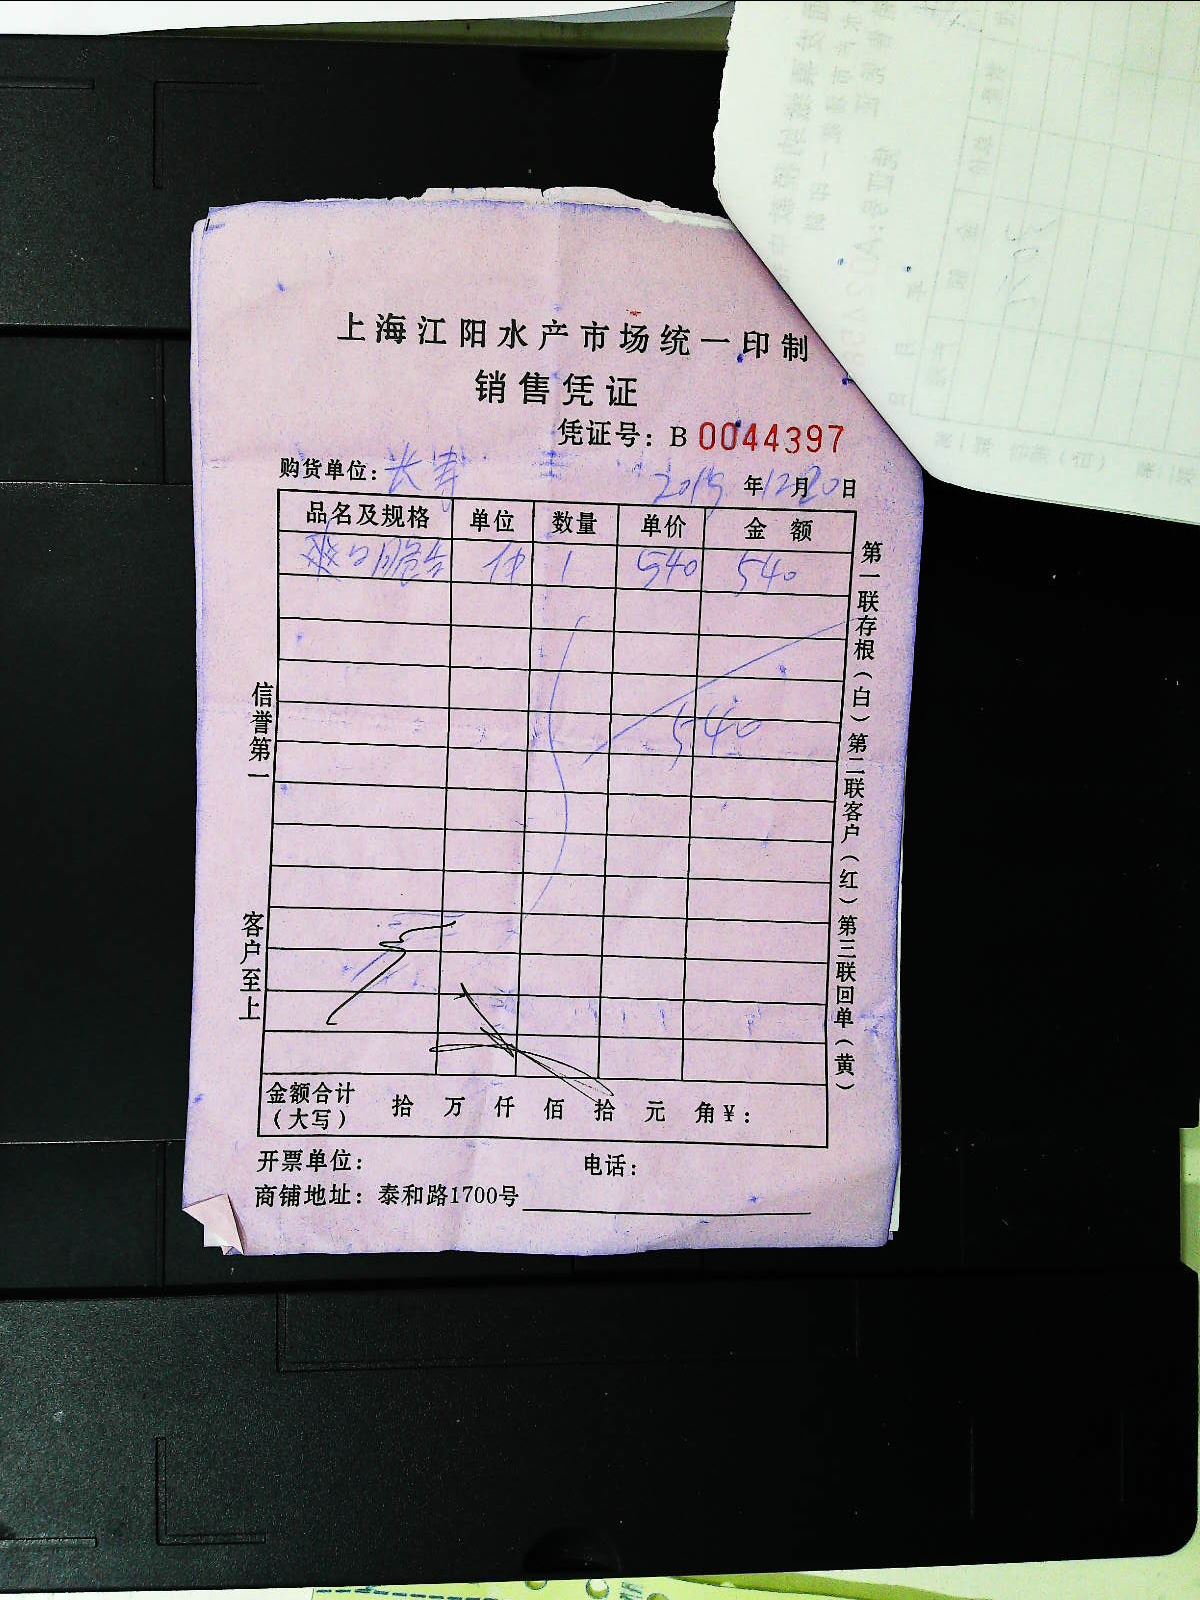 上海江阳水产市场统一印制
销售凭证
凭证号：B 0044397
购货单位：长寿 2015年12月20日
品名及规格 单位 数量 单价 金额
件 1 540 540
540
信誉第一
客户至上
第一联存根（白）第二联客户（红）第三联回单（黄）
金额合计（大写） 拾 万 仟 佰 拾 元 角¥：
开票单位： 电话：
商铺地址：泰和路1700号